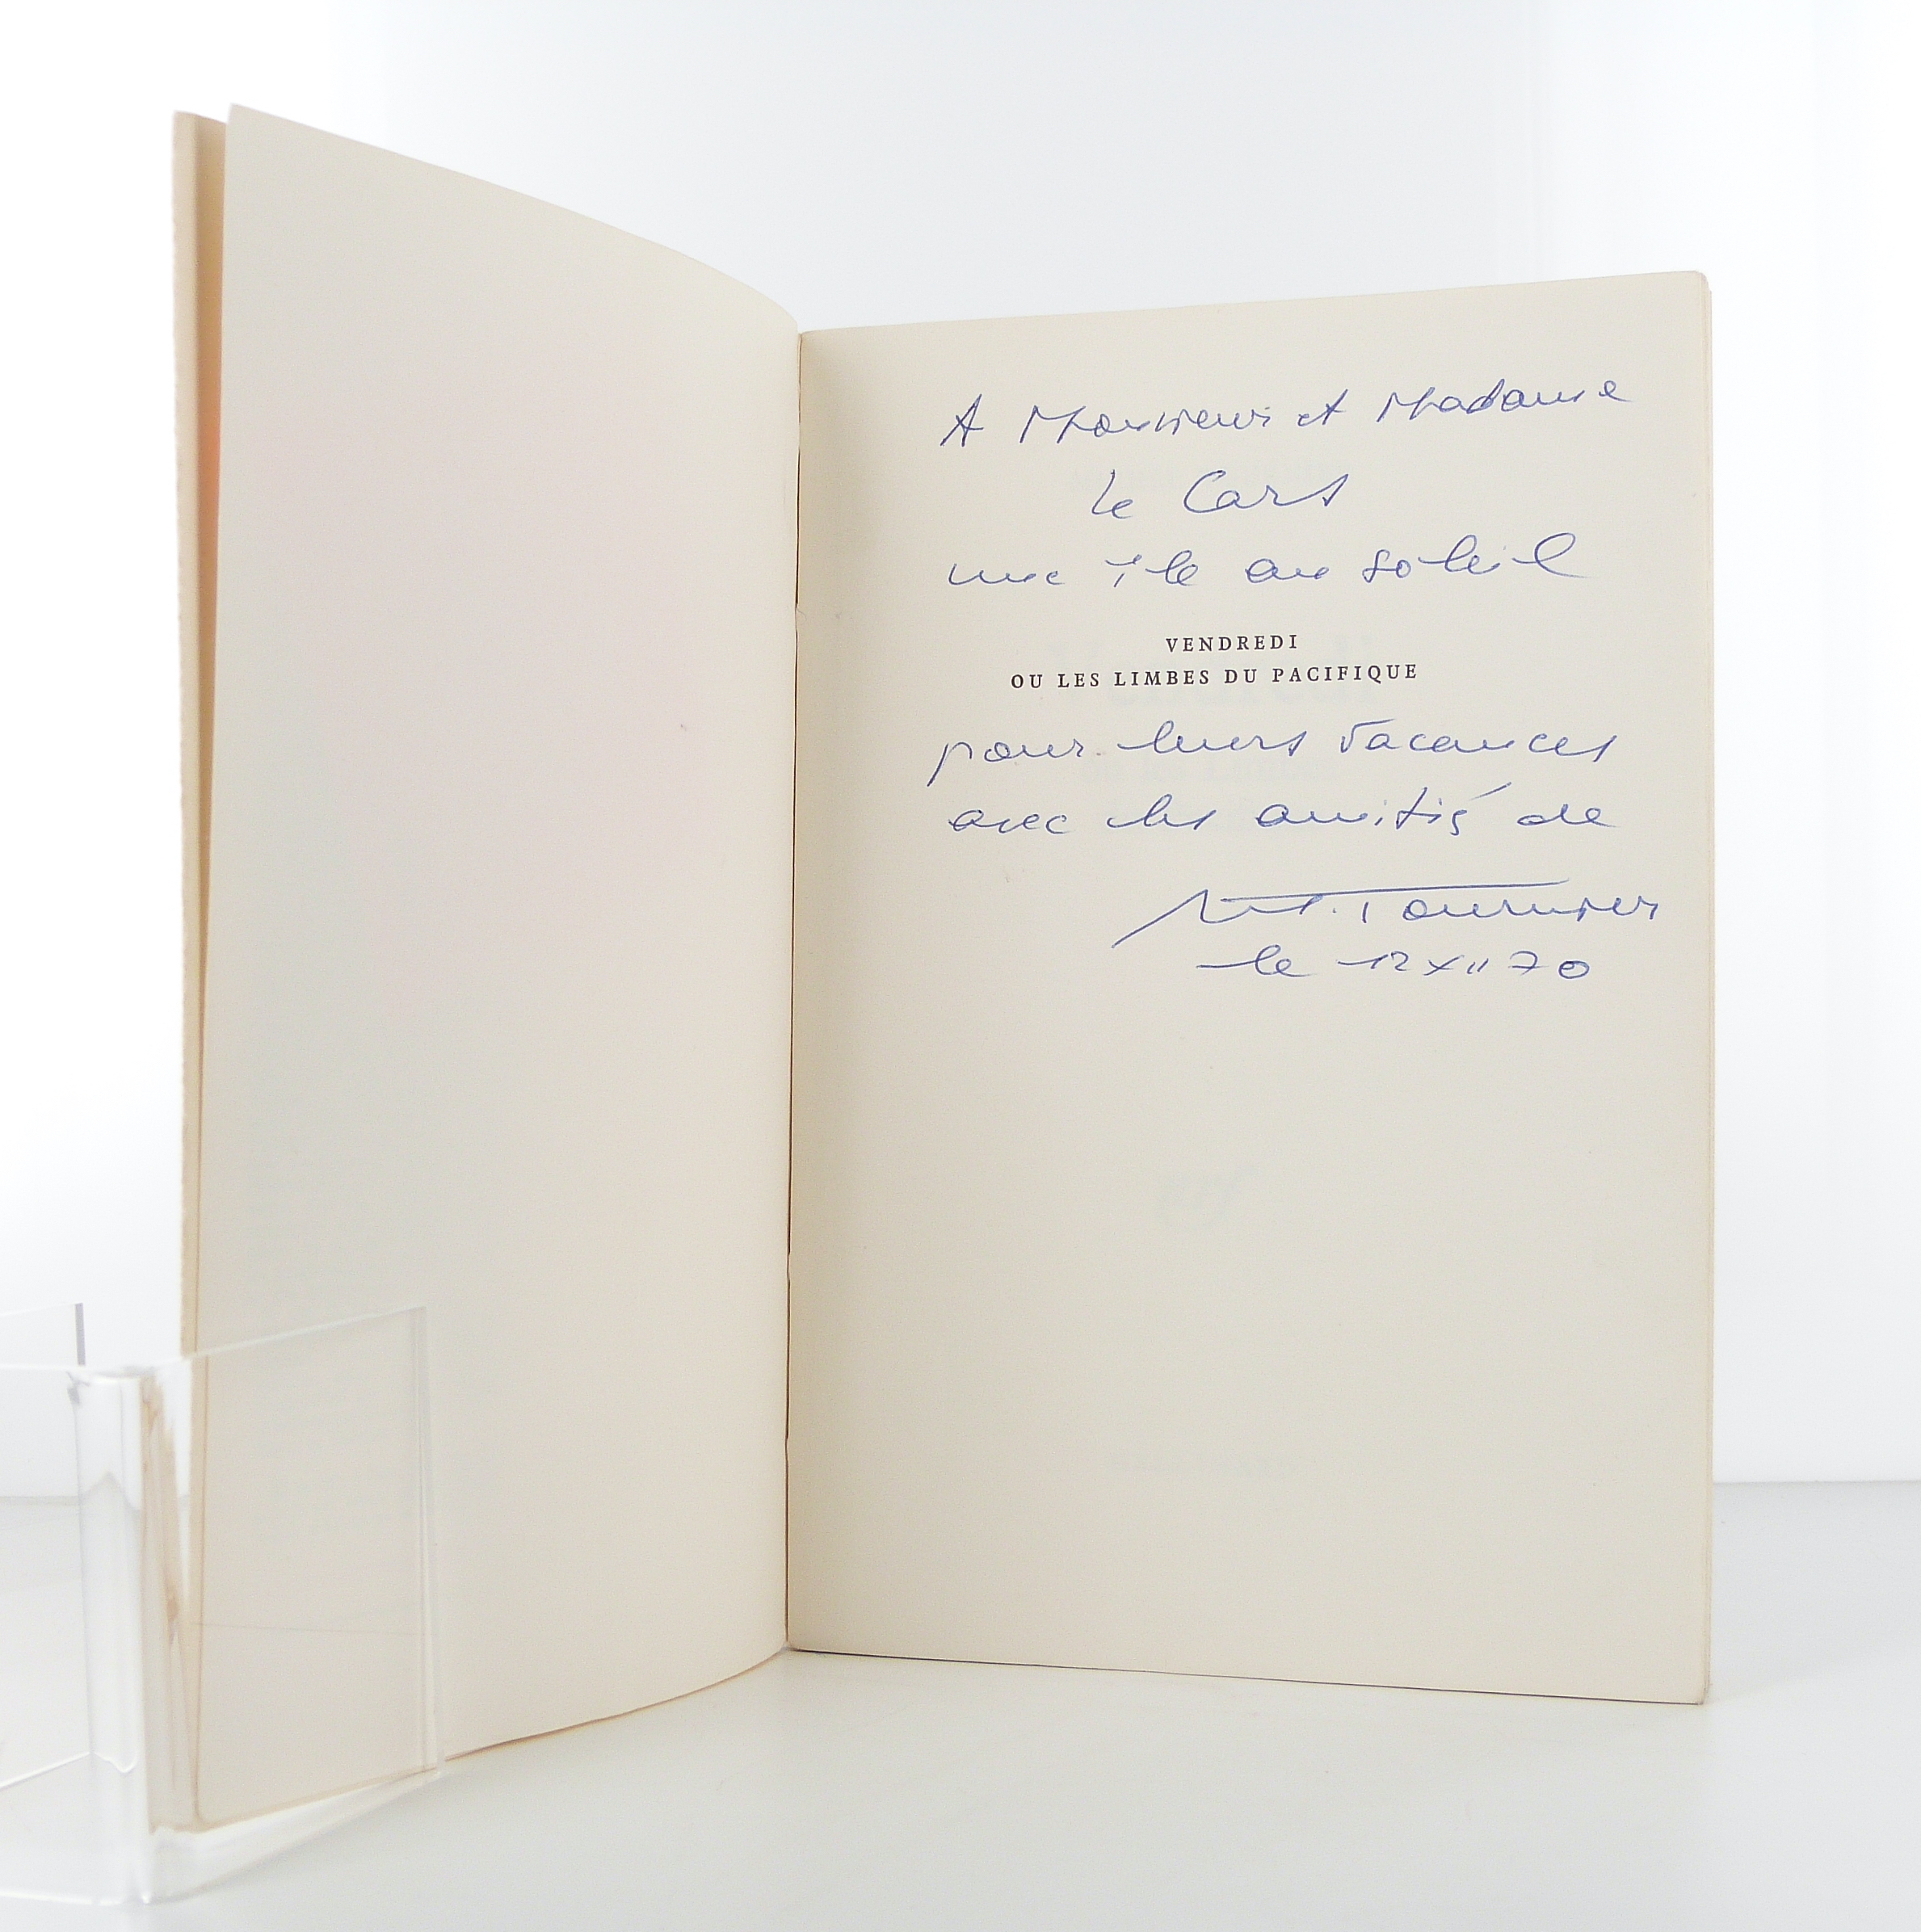 A Monsieur et Madame
le Cars
une île au soleil
VENDREDI
OU LES LIMBES DU PACIFIQUE
pour leurs vacances
avec les amitiés de
M. Tournier
le 12 XII 70